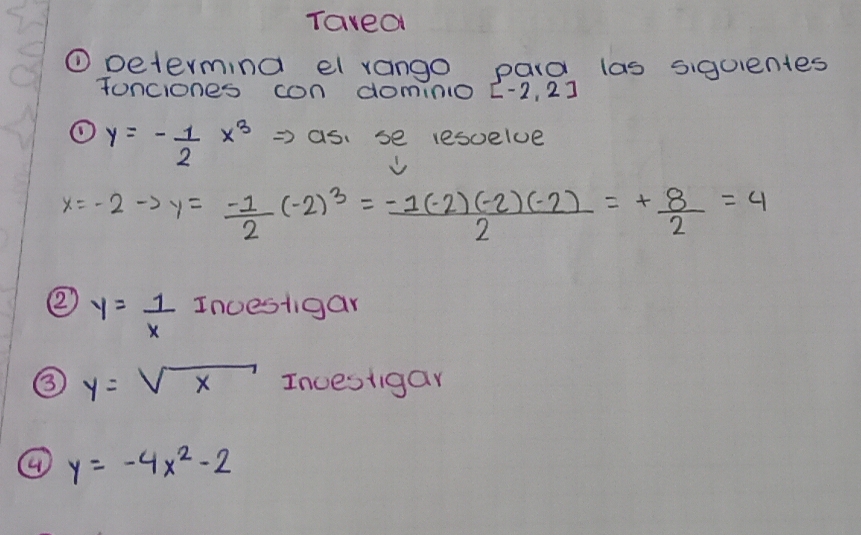 Tarea
① Determina el rango para las siguientes
funciones con dominio [-2,2]
① y = - 1/2 x³ => así se resuelve
↓
x = -2 -> y = -1/2 (-2)³ = -1(-2)(-2)(-2)/2 = + 8/2 = 4
② y = 1/x Investigar
③ y = √x Investigar
④ y = -4x² - 2